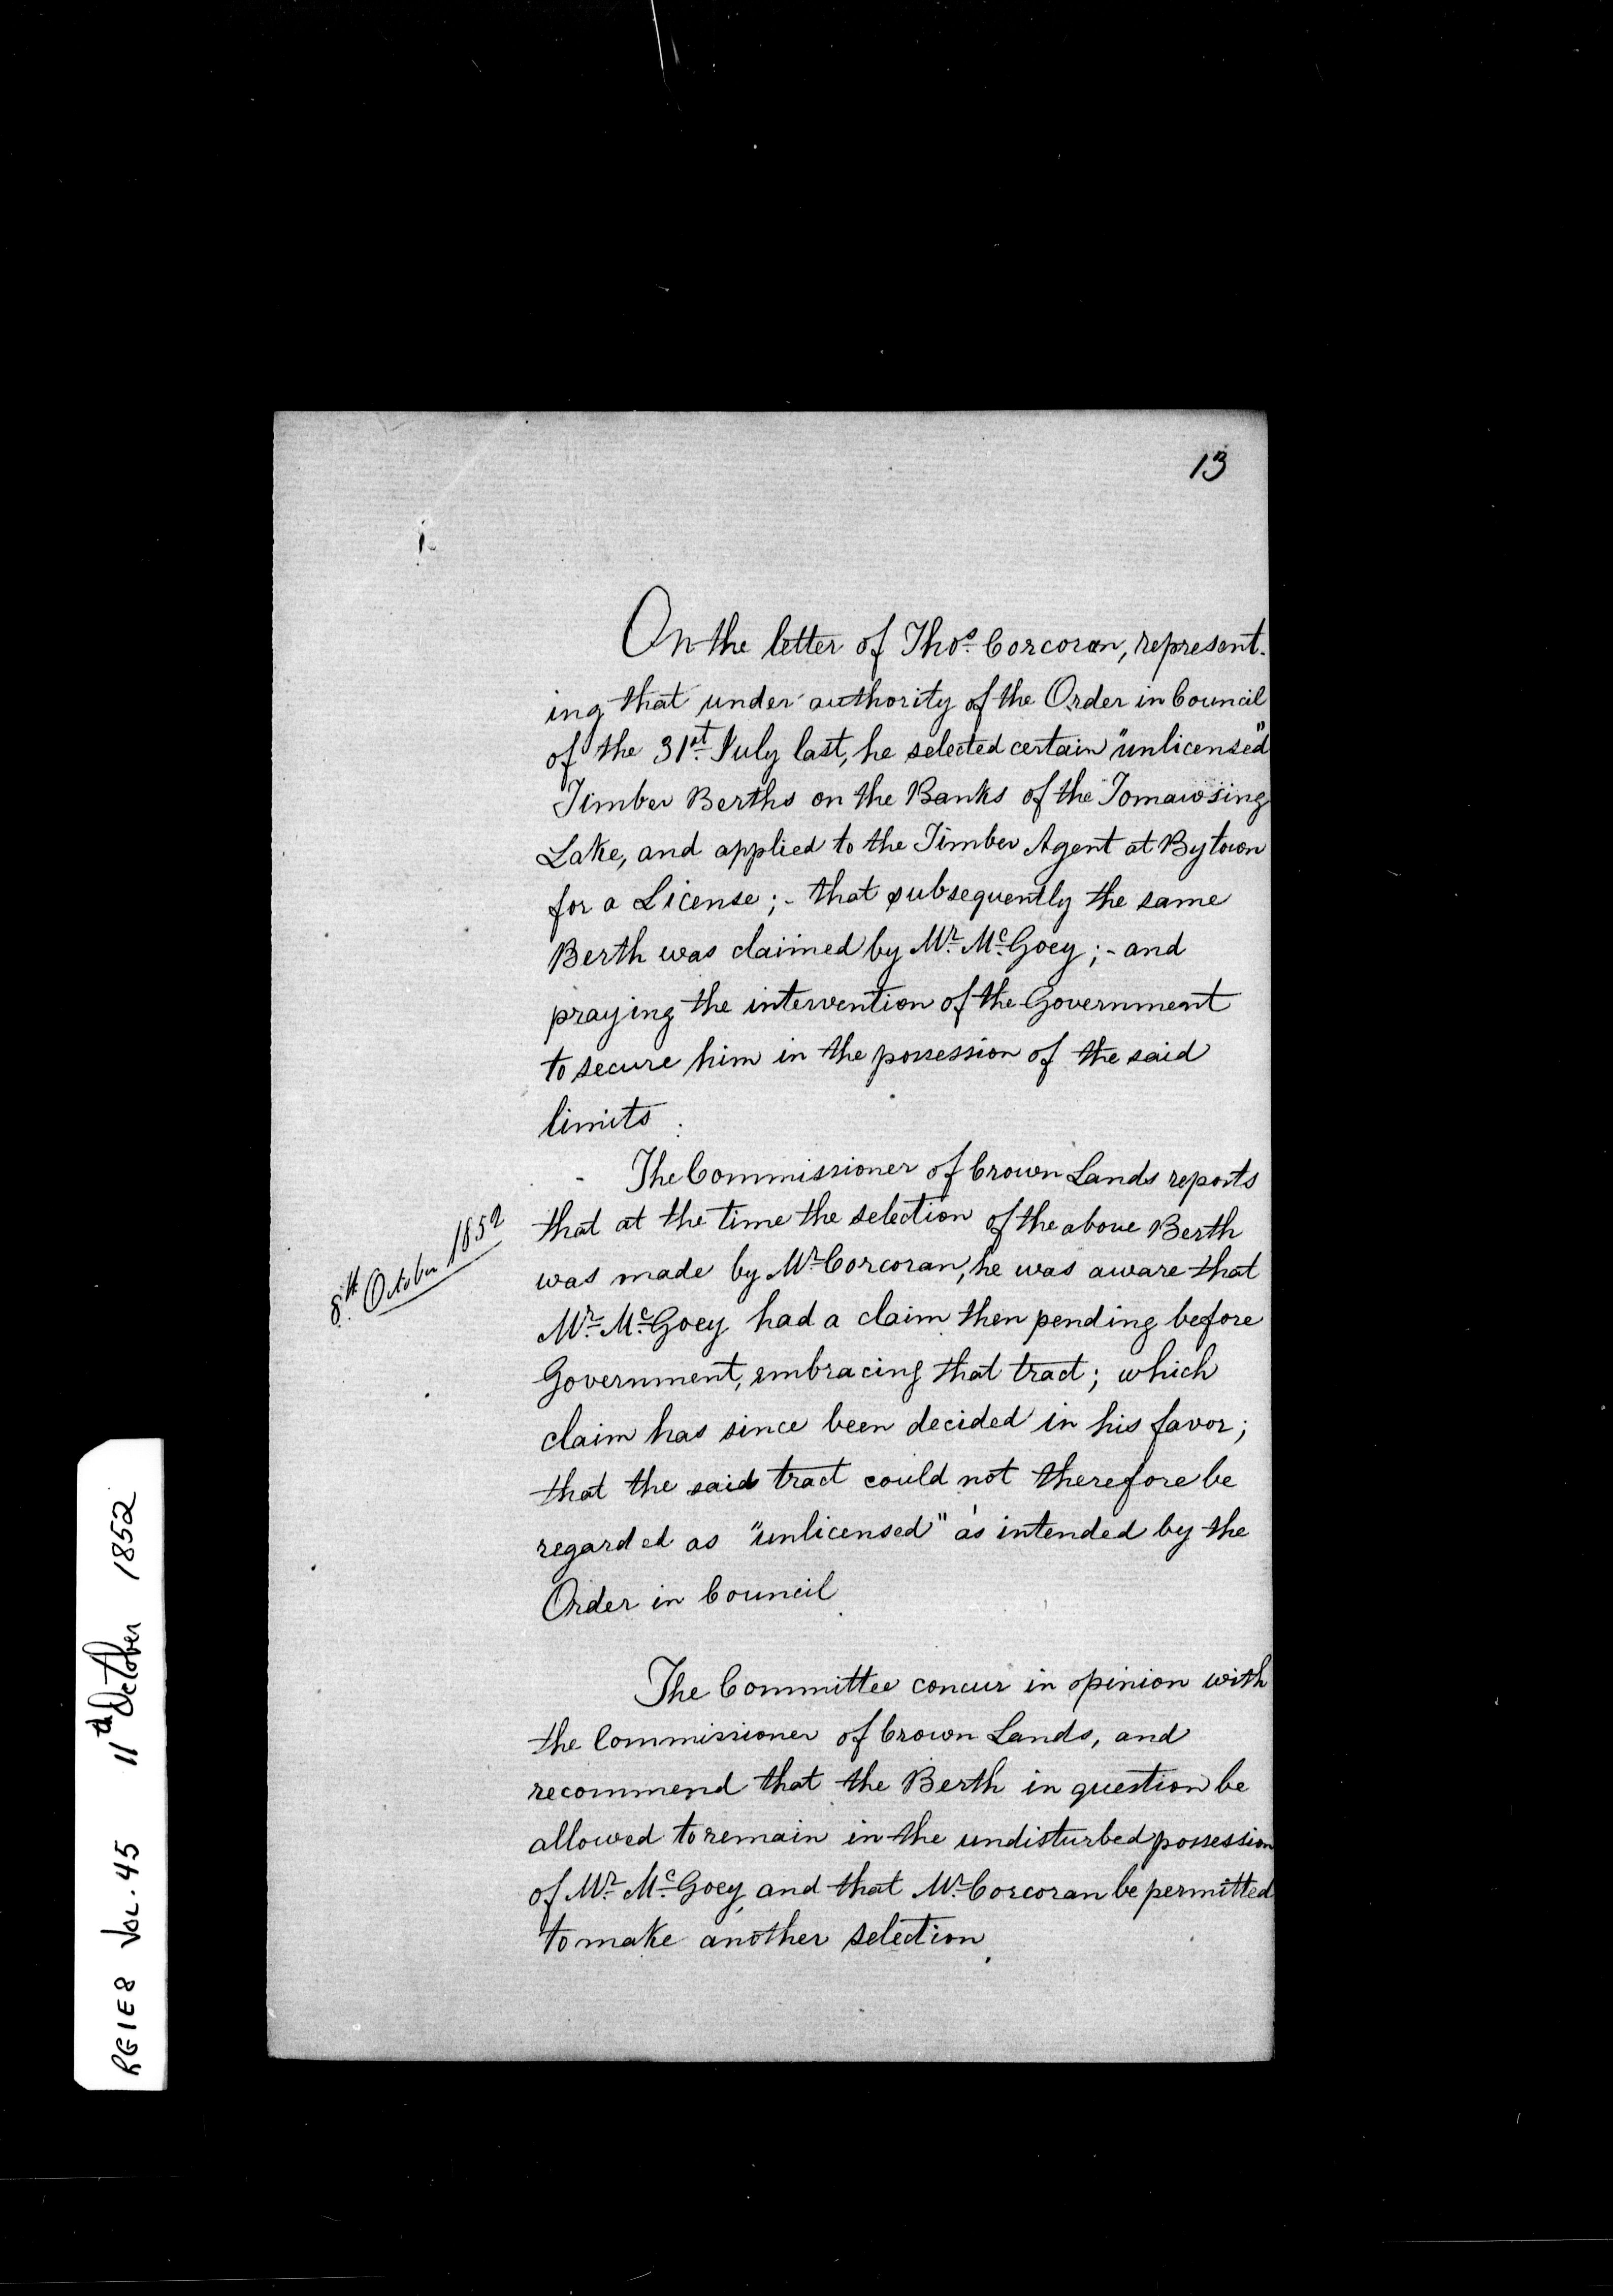 13
On the letter of Thos. Corcoran, represent-
ing that under authority of the Order in Council
of the 31st. July last, he selected certain "unlicensed"
Timber Berths on the Banks of the Tomawsing
Lake, and applied to the Timber Agent at Bytown
for a License; - that subsequently the same
Berth was claimed by Mr. McGoey; - and
praying the intervention of the Government
to secure him in the possession of the said
limits.
- The Commissioner of Crown Lands reports
that at the time the selection of the above Berth
was made by Mr Corcoran, he was aware that
Mr. McGoey had a claim then pending before
Government, embracing that tract; which
claim has since been decided in his favor;
that the said tract could not therefore be
regarded as "unlicensed" as intended by the
Order in Council.
8th. October 1852
The Committee concur in opinion with
the Commissioner of Crown Lands, and
recommend that the Berth in question be
allowed to remain in the undisturbed possession
of Mr. McGoey, and that Mr Corcoran be permitted
to make another selection.
RG1E8 VOL. 45 11th October 1852